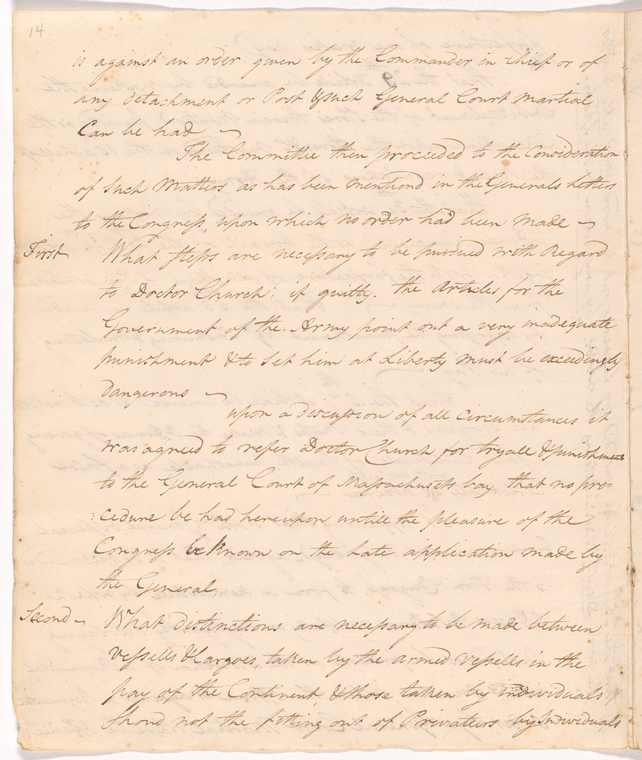 14
is against an order given by the Commander in Chief or of
any Detachment or Post & such General Court Martial
Can be had
The Committee then proceeded to the Consideration
of Such Matters as has been mentiond in the Generals Letters
to the Congress, upon which no order had been made
First What steps are necessary to be pursued with Regard
to Doctor Church; if guilty. the Articles for the
Government of the Army point out a very inadequate
punishment & to Set him at Liberty must be exceedingly
Dangerous
upon a discussion of all circumstances it
was agreed to refer Doctor Church for tryall & punishment
to the General Court of Massachusets bay, that no pro-
:cedure be had hereupon untill the pleasure of the
Congress be Known on the Late application made by
the General
Second What distinctions are necessary to be made between
vessells & Cargoes, taken by the armed vessells in the
pay of the Continent, & those taken by individuals
Shoud not the fitting out of Privatiers by Individuals